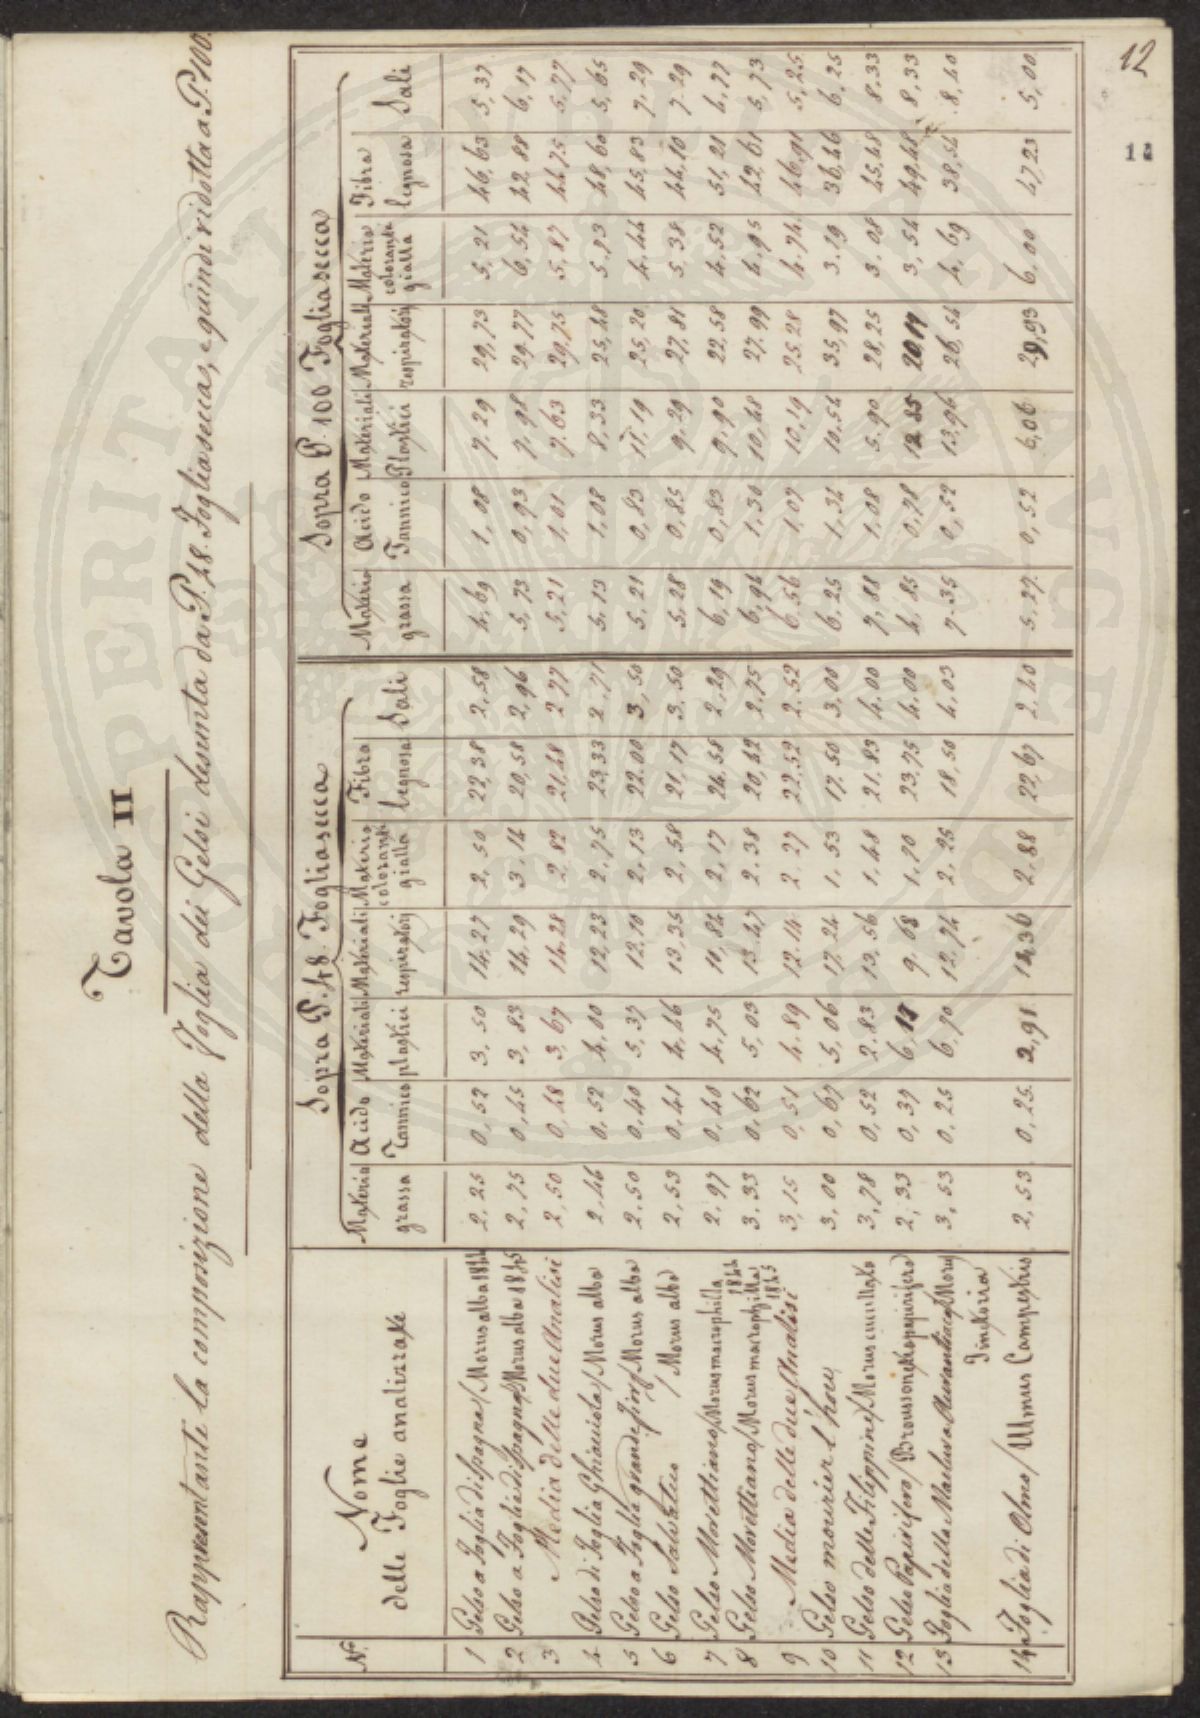 12
Tavola II
Rappresentante la composizione della Foglia dei Gelsi desunta da P. 48. Foglia secca, e quindi ridotta a P. 100.
Sopra P. 48. Foglia secca | Sopra P. 100 Foglia secca
N.º | Nome delle Foglie analizzate | Materia grassa | Acido Tannico | Materiali plastici | Materiali respiratorj | Materia colorante gialla | Fibra legnosa | Sali | Materia grassa | Acido Tannico | Materiali Plastici | Materiali respiratorj | Materia colorante gialla | Fibra legnosa | Sali
1 | Gelso a Foglia di Spagna / Morus alba 1844 | 2,25 | 0,52 | 3,50 | 14,27 | 2,50 | 22,38 | 2,58 | 4,69 | 1,08 | 7,29 | 29,73 | 5,21 | 46,63 | 5,37
2 | Gelso a Foglia di Spagna / Morus alba 1845 | 2,75 | 0,45 | 3,83 | 14,29 | 3,14 | 20,58 | 2,96 | 5,73 | 0,93 | 7,98 | 29,77 | 6,54 | 42,88 | 6,17
3 | Media delle due Analisi | 2,50 | 0,48 | 3,67 | 14,28 | 2,82 | 21,48 | 2,77 | 5,21 | 1,01 | 7,63 | 29,75 | 5,87 | 44,75 | 5,77
4 | Gelso di Foglia Ghiacciola / Morus alba | 2,46 | 0,52 | 4,00 | 12,23 | 2,75 | 23,33 | 2,71 | 5,13 | 1,08 | 8,33 | 25,48 | 5,73 | 48,60 | 5,65
5 | Gelso a Foglia grande / Morus alba | 2,50 | 0,40 | 5,37 | 12,10 | 2,13 | 22,00 | 3,50 | 5,21 | 0,83 | 11,19 | 25,20 | 4,44 | 45,83 | 7,29
6 | Gelso Salvatico / Morus alba | 2,53 | 0,41 | 4,46 | 13,35 | 2,58 | 21,17 | 3,50 | 5,28 | 0,85 | 9,29 | 27,81 | 5,38 | 44,10 | 7,29
7 | Gelso Morettiano / Morus macrophilla 1844 | 2,97 | 0,40 | 4,75 | 10,84 | 2,17 | 24,58 | 2,29 | 6,19 | 0,83 | 9,90 | 22,58 | 4,52 | 51,21 | 4,77
8 | Gelso Morettiano / Morus macrophilla 1845 | 3,33 | 0,62 | 5,03 | 13,47 | 2,38 | 20,42 | 2,75 | 6,94 | 1,30 | 10,48 | 27,99 | 4,95 | 42,61 | 5,73
9 | Media delle due Analisi | 3,15 | 0,51 | 4,89 | 12,14 | 2,27 | 22,52 | 2,52 | 6,56 | 1,07 | 10,19 | 25,28 | 4,74 | 46,91 | 5,25
10 | Gelso mourier l'hou | 3,00 | 0,67 | 5,06 | 17,24 | 1,53 | 17,50 | 3,00 | 6,25 | 1,34 | 10,54 | 35,97 | 3,19 | 36,46 | 6,25
11 | Gelso delle Filippine / Morus cucullata | 3,78 | 0,52 | 2,83 | 13,56 | 1,48 | 21,83 | 4,00 | 7,88 | 1,08 | 5,90 | 28,25 | 3,08 | 45,48 | 8,33
12 | Gelso Papirifero / Broussonetia papirifera | 2,33 | 0,37 | 6,17 | 9,68 | 1,70 | 23,75 | 4,00 | 4,85 | 0,78 | 12,85 | 20,17 | 3,54 | 49,48 | 8,33
13 | Foglia della Maclura Aurantiaca / Morus Tinctoria | 3,53 | 0,25 | 6,70 | 12,74 | 2,25 | 18,50 | 4,03 | 7,35 | 0,52 | 13,96 | 26,54 | 4,69 | 38,54 | 8,40
14 | Foglia di Olmo / Ulmus Campestris | 2,53 | 0,25 | 2,91 | 14,36 | 2,88 | 22,67 | 2,40 | 5,27 | 0,52 | 6,06 | 29,93 | 6,00 | 47,23 | 5,00